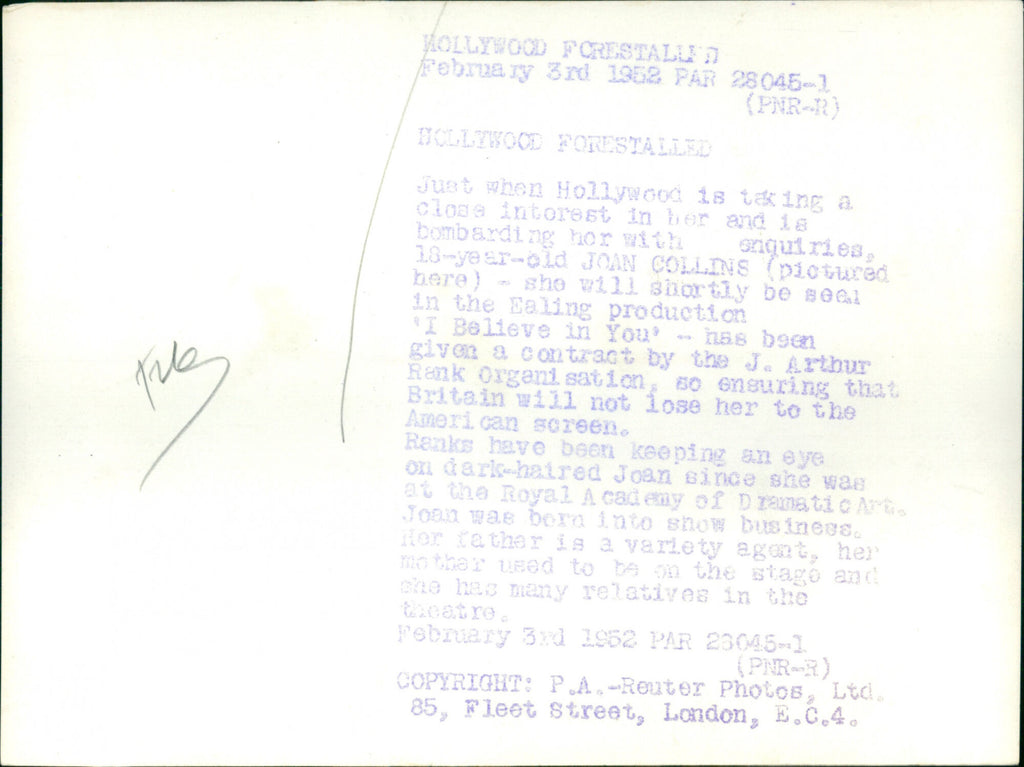 HOLLYWOOD FORESTALLED
February 3rd 1952 PAR 28045-1
(PNR-R)
HOLLYWOOD FORESTALLED
Just when Hollywood is taking a
close interest in her and is
bombarding her with enquiries,
18-year-old JOAN COLLINS (pictured
here) - she will shortly be seen
in the Ealing production
'I Believe in You' - has been
given a contract by the J. Arthur
Rank Organisation, so ensuring that
Britain will not lose her to the
American screen.
Ranks have been keeping an eye
on dark-haired Joan since she was
at the Royal Academy of Dramatic Art.
Joan was born into show business.
Her father is a variety agent, her
mother used to be on the stage and
she has many relatives in the
theatre.
February 3rd 1952 PAR 28045-1
(PNR-R)
COPYRIGHT: P.A.-Reuter Photos, Ltd.
85, Fleet Street, London, E.C.4.